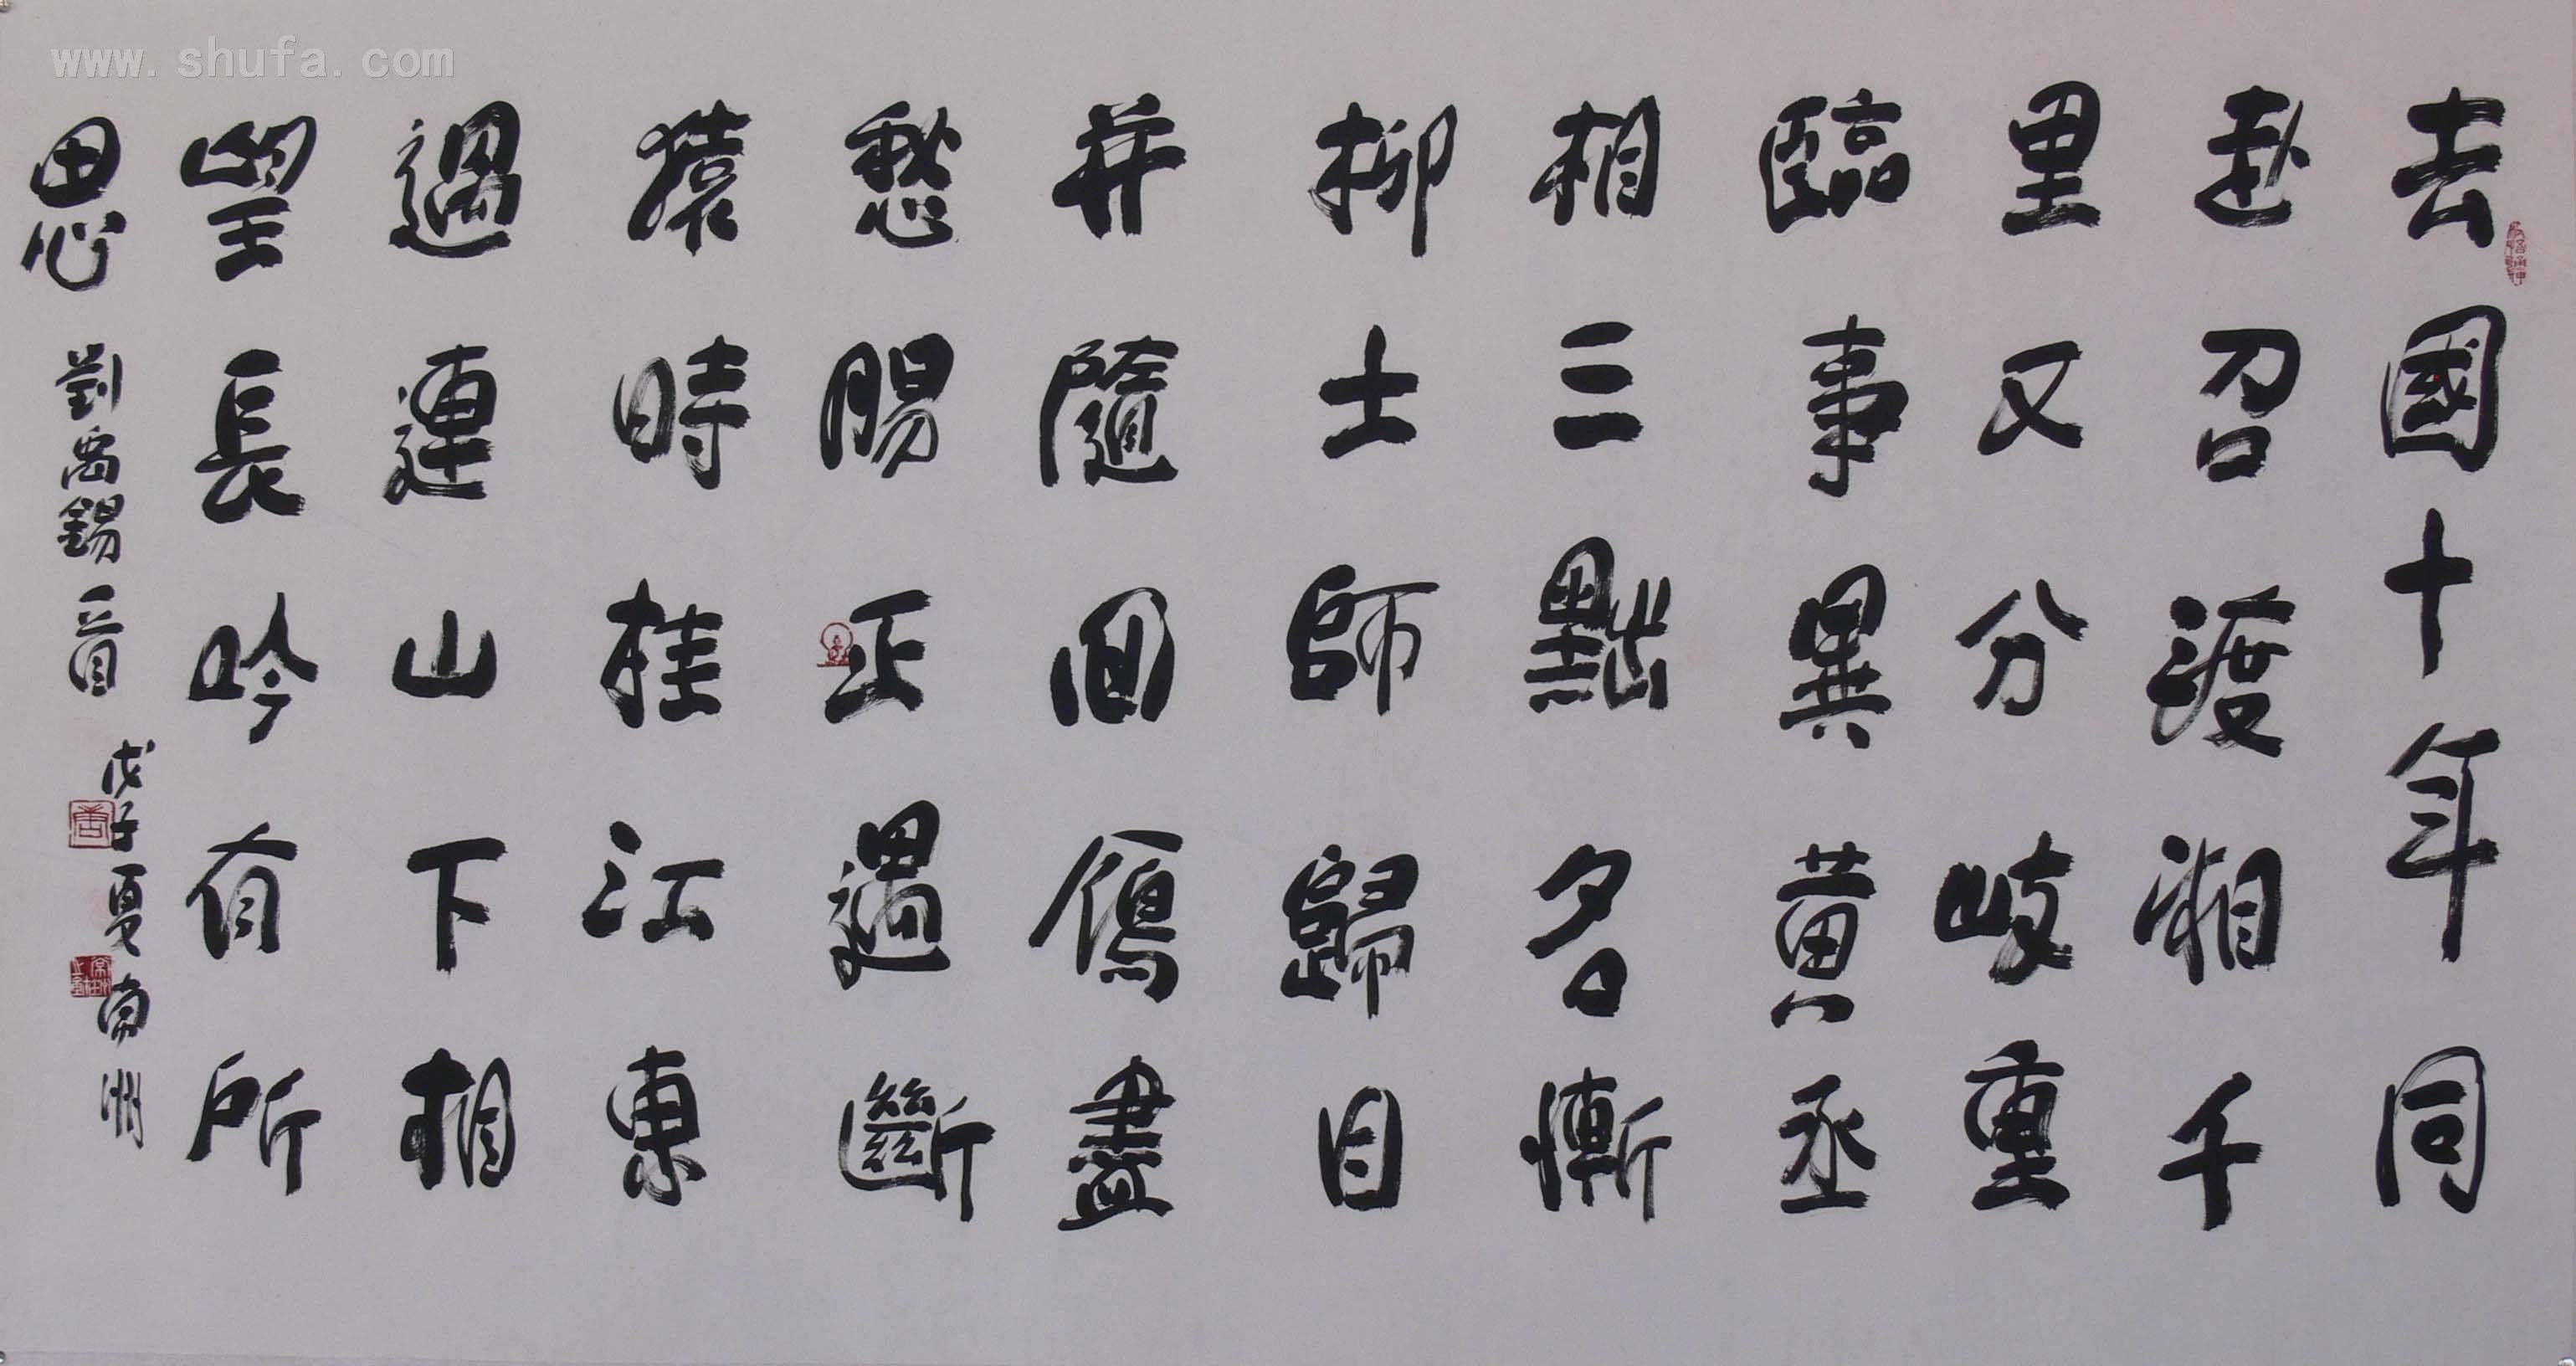 www.shufa.com
去國十年同
赴召渡湘千
里又分岐重
臨事異黃丞
相三黜名慚
柳士師歸目
并隨回鴈盡
愁腸正遇斷
猿時桂江東
過連山下相
望長吟有所
思 劉禹錫一首
戊子夏南州